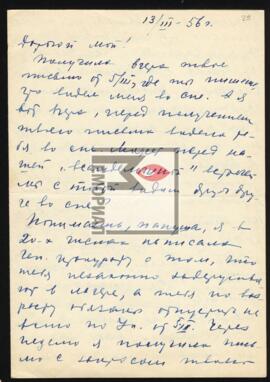 13/III - 56 г.
Дорогой мой!
Получила вчера твое
письмо от 5/III, где ты пишешь,
что видел меня во сне. А я
вот вчера, перед получением
твоего письма видела те-
бя во сне. Может перед на-
шей
мы с тобой видим друг дру-
га во сне.
Понимаешь, папуля, я в
20-х числах написала
Ген. прокурору о том, что
тебя незаконно задержива-
ют в лагере, а тебя по воз-
расту обязаны отпустить
по Ук. от Через
неделю я получила пись-
мо с запросом
МЕМОРИАЛ